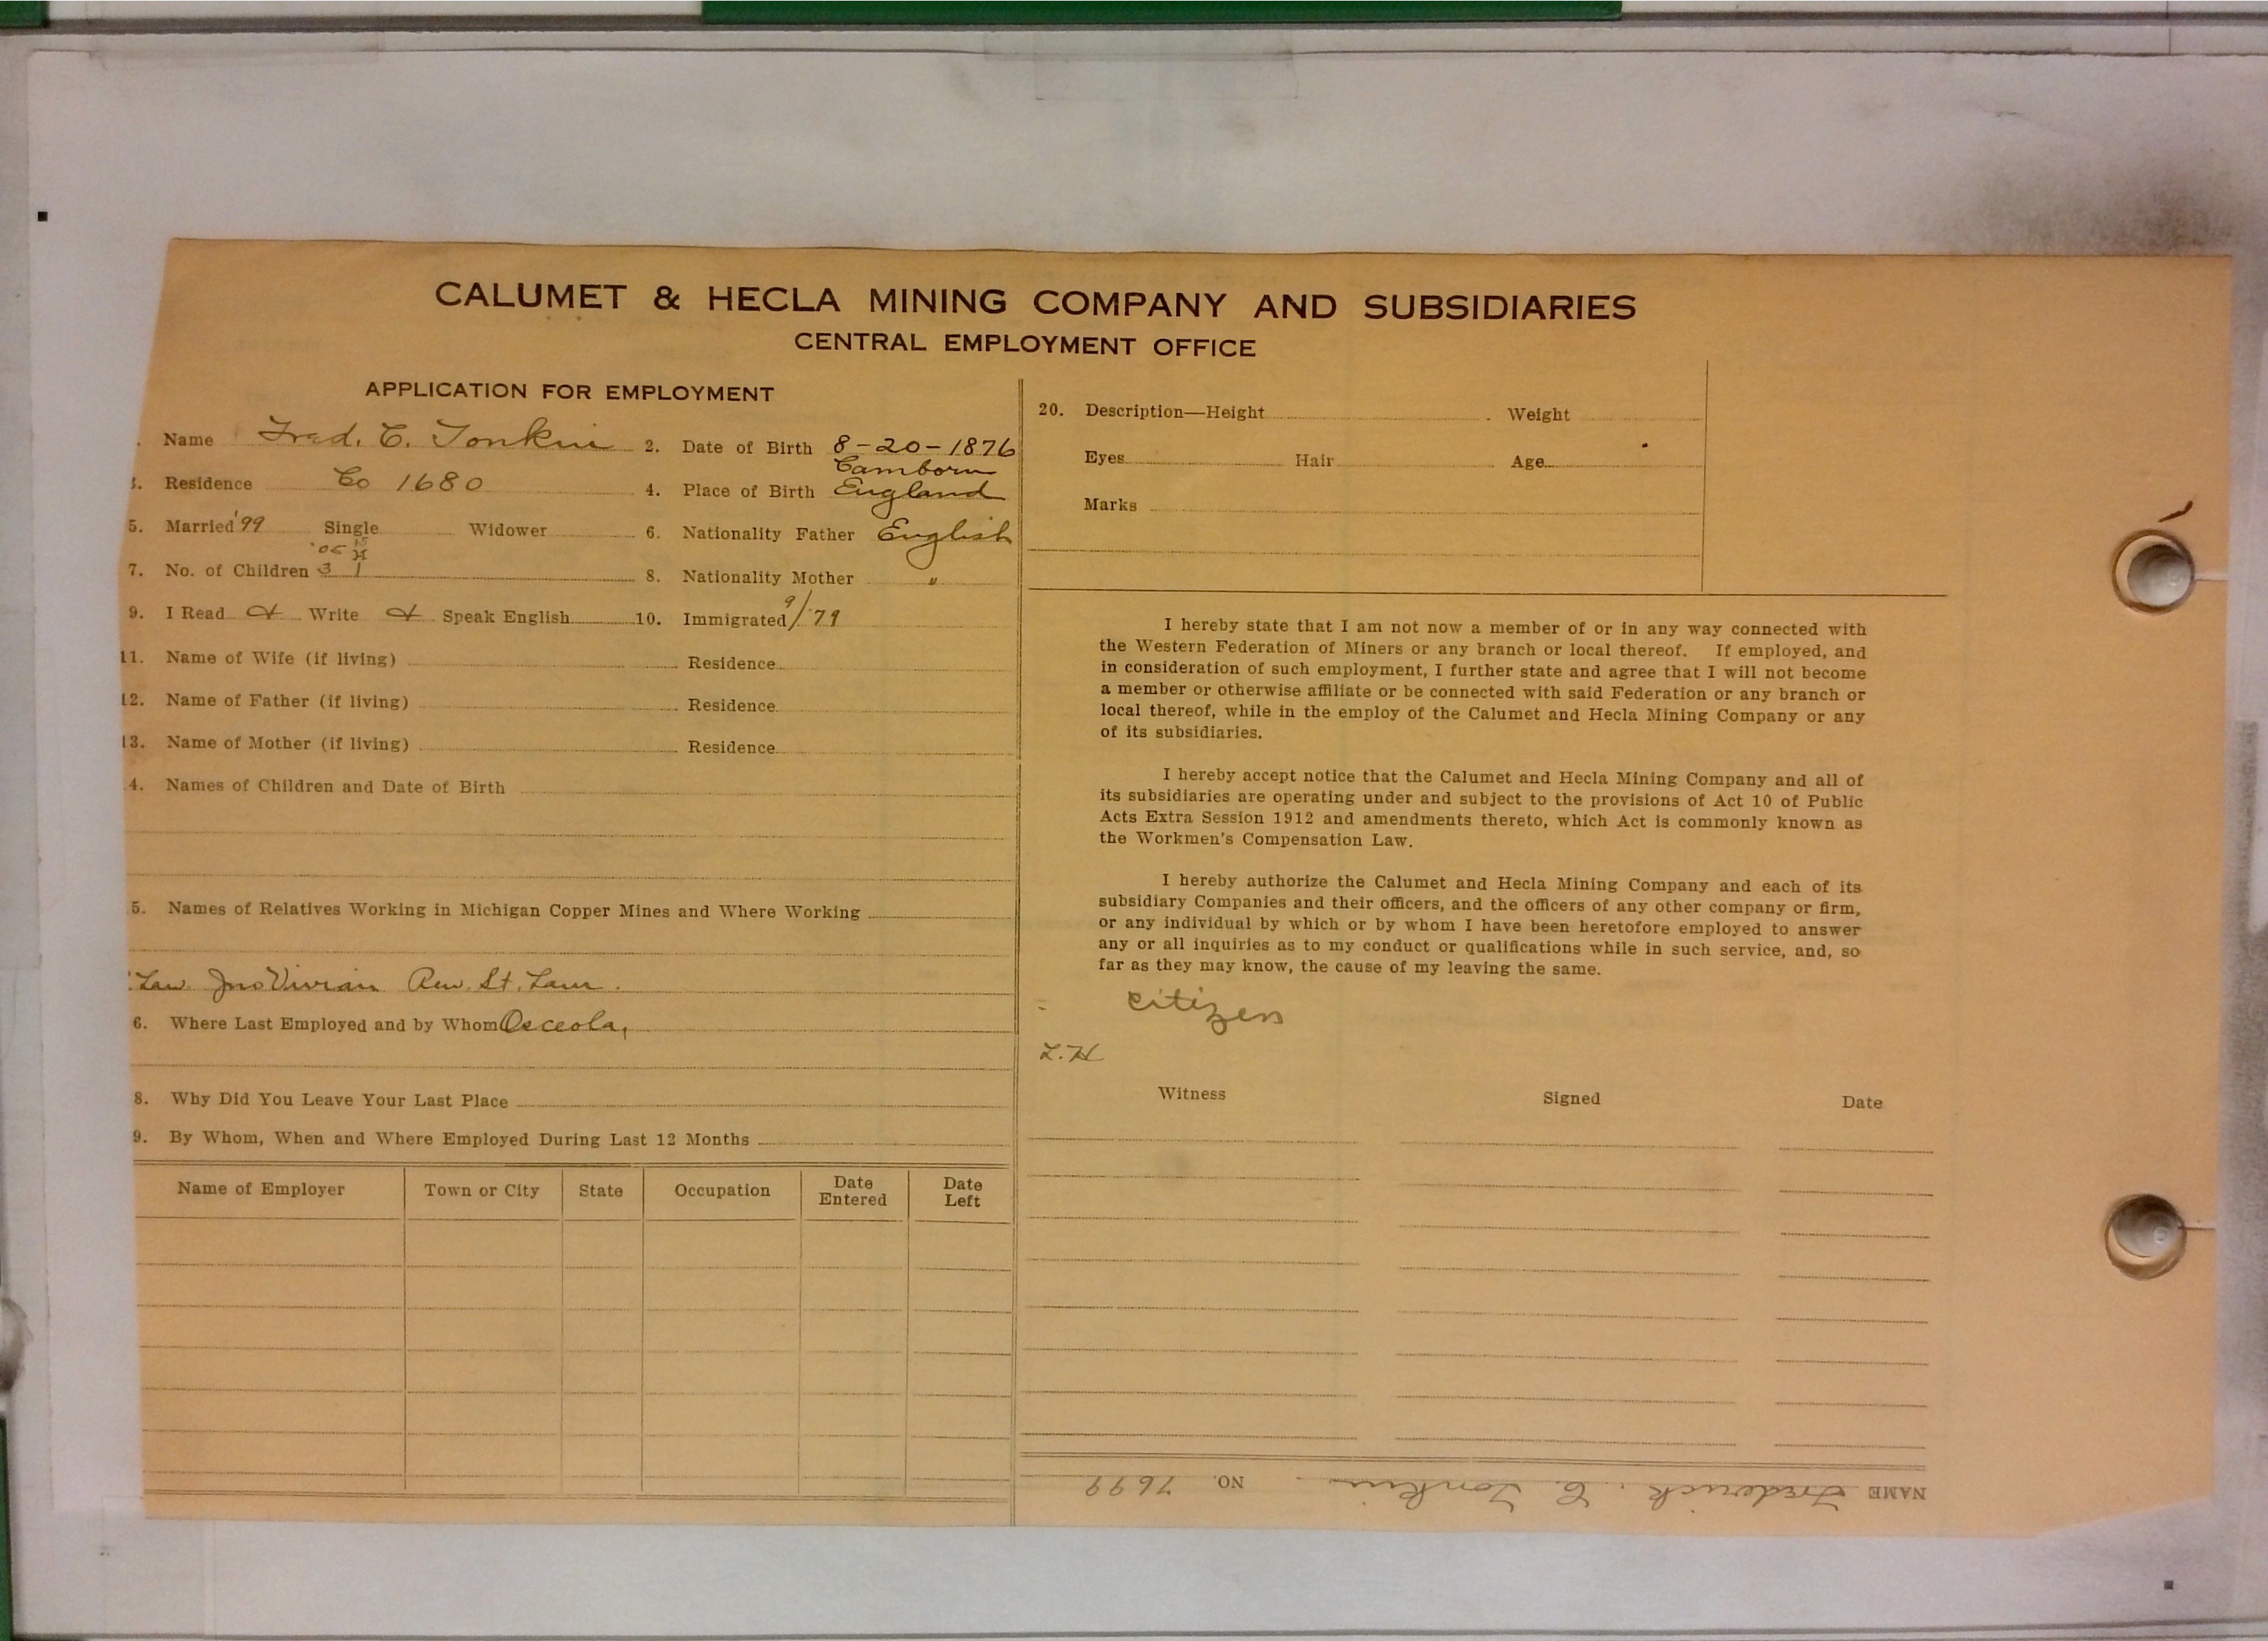 CALUMET & HECLA MINING COMPANY AND SUBSIDIARIES
CENTRAL EMPLOYMENT OFFICE
APPLICATION FOR EMPLOYMENT
. Name Fred. C. Tonkin 2. Date of Birth 8-20-1876
Camborn
3. Residence Co 1680 4. Place of Birth England
5. Married '99 Single Widower 6. Nationality Father English
'05 15
7. No. of Children 3 1 8. Nationality Mother "
9. I Read & Write & Speak English 10. Immigrated 9/'79
11. Name of Wife (if living) Residence
12. Name of Father (if living) Residence
13. Name of Mother (if living) Residence
4. Names of Children and Date of Birth
5. Names of Relatives Working in Michigan Copper Mines and Where Working
Law Jno Vivian Rew. St. Law.
6. Where Last Employed and by Whom Osceola,
8. Why Did You Leave Your Last Place
9. By Whom, When and Where Employed During Last 12 Months
Name of Employer Town or City State Occupation Date Entered Date Left
20. Description—Height Weight
Eyes Hair Age
Marks
I hereby state that I am not now a member of or in any way connected with
the Western Federation of Miners or any branch or local thereof. If employed, and
in consideration of such employment, I further state and agree that I will not become
a member or otherwise affiliate or be connected with said Federation or any branch or
local thereof, while in the employ of the Calumet and Hecla Mining Company or any
of its subsidiaries.
I hereby accept notice that the Calumet and Hecla Mining Company and all of
its subsidiaries are operating under and subject to the provisions of Act 10 of Public
Acts Extra Session 1912 and amendments thereto, which Act is commonly known as
the Workmen's Compensation Law.
I hereby authorize the Calumet and Hecla Mining Company and each of its
subsidiary Companies and their officers, and the officers of any other company or firm,
or any individual by which or by whom I have been heretofore employed to answer
any or all inquiries as to my conduct or qualifications while in such service, and, so
far as they may know, the cause of my leaving the same.
citizen
L.H
Witness Signed Date
NAME Frederick. C. Tonkin. NO. 7699